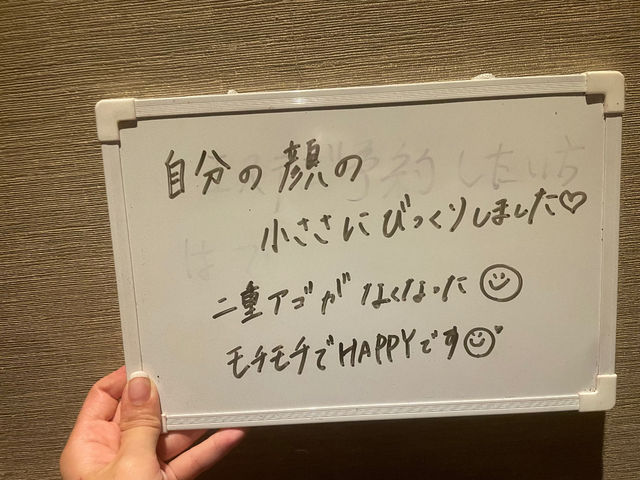 自分の顔の
小ささにびっくりしました♡
二重アゴがなくなった☺
モチモチでHAPPYです☺